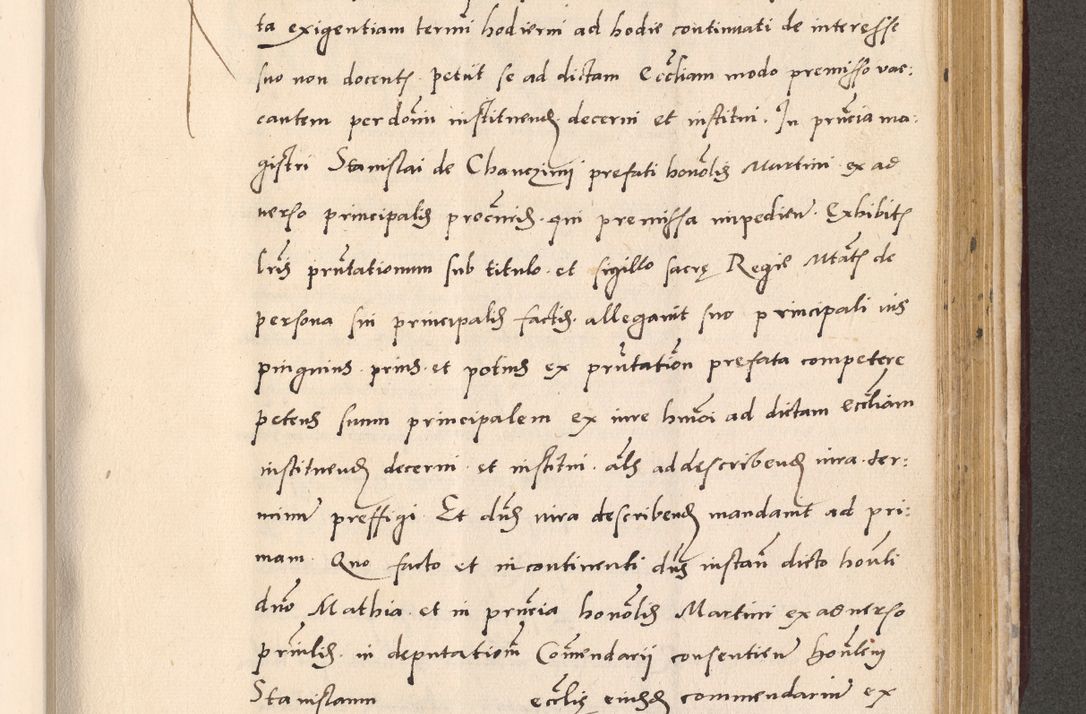 ta exigentiam termĩ hodierni ad hodie continuati de interesse
suo non docentꝭ petiit se ad dictam Eccliam modo premisso vac:
cantem per domĩ instituendꝭ decerni et institui. In pñcia ma:
gistri Stanislai de Chanczinij prefati honolis Martini ex ad
uerso principalis procuris. qui premissa impedien̄. Exhibitꝭ
lris pñtationum sub titulo et sigillo sacrę Regie Mtatꝭ de
persona sui principalis factis. allegauit suo principali ius
pinguius prius et potius ex pñtation̄ prefata competere
petens suum principalem ex iure hmoi ad dictam eccliam
instituendꝭ decerni et institui. als ad describendꝭ iura ter:
minum preffigi Et dns iura describendꝭ mandauit ad pri:
mam. Quo facto et incontinenti dns instan̄ dicto honli
dno Mathia et in pñcia honolis Martini ex aduerso
prnlis. in deputation̄ Comendarii consentien̄ Honlem
Stanislaum ecclis eiusdꝭ commendarium ex